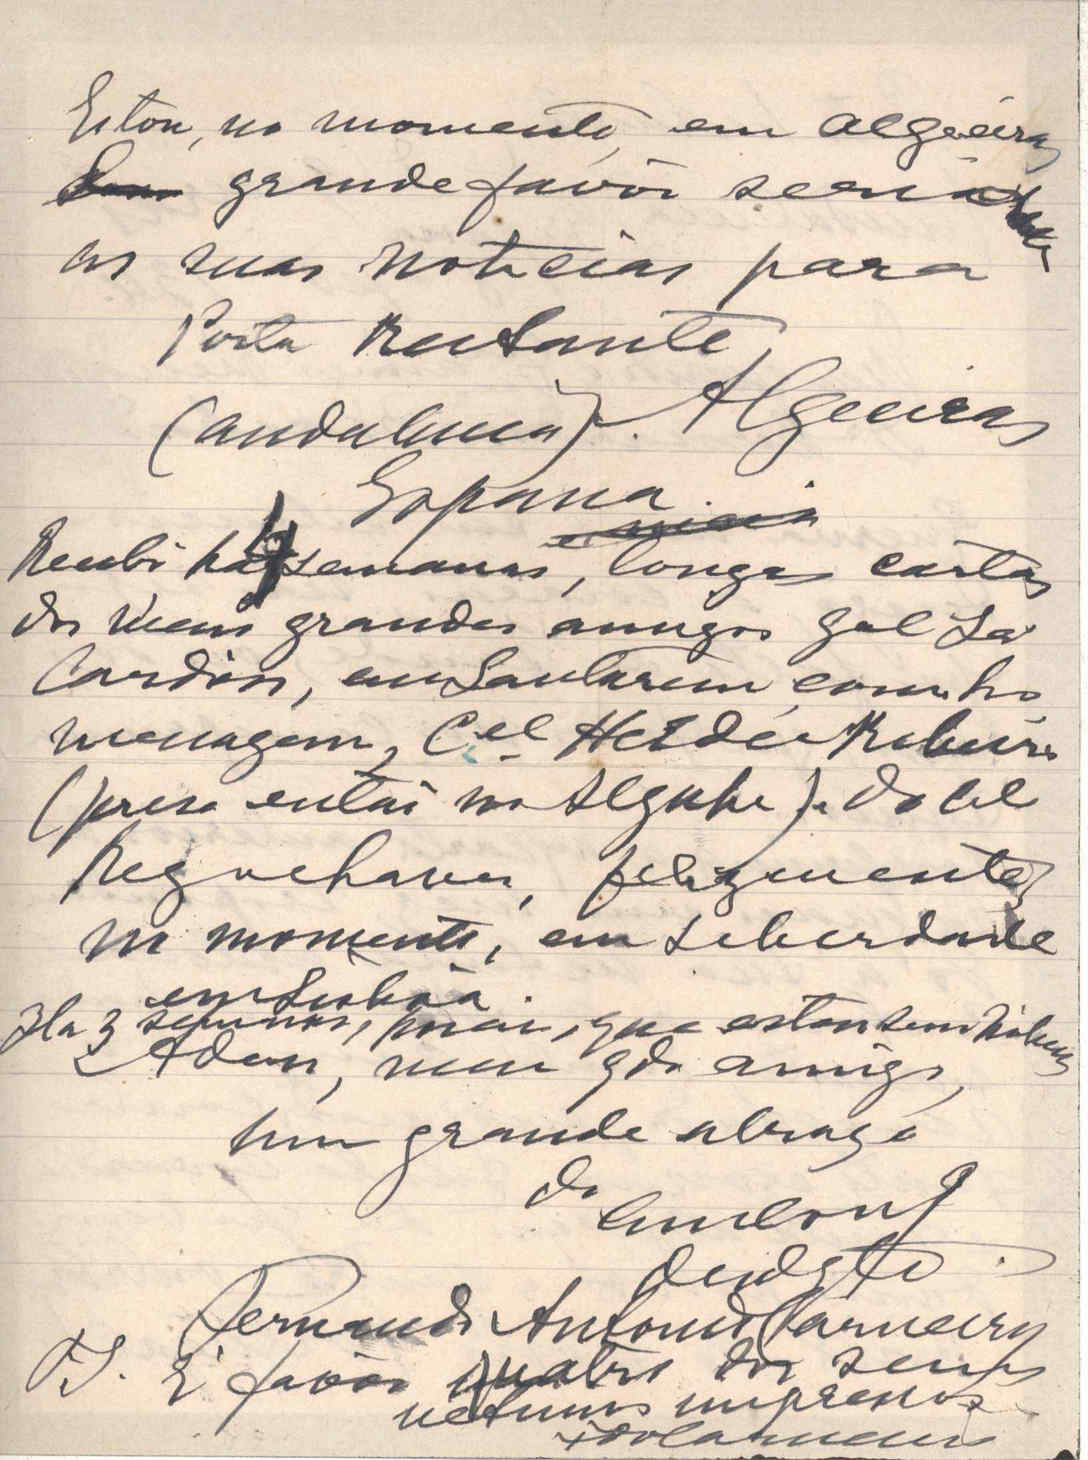 Estou, no momento, em Algeciras
grande favôr seria
as suas noticias para
Posta Restante,
(Andaluzia). Algeciras
Espana.
Recebi há semanas, longas cartas
dos meus grandes amigos Gal Sá
Cardôso, em Santarem, com ho
menagem, Cel Helder Ribeiro
(preso então no Aljube) e do Cel
felizmente,
no momento, em Liberdade
em Lisbôa.
Ha 3 semanas, porém, que estou sem
Adeus, meu gde amigo,
Um grande abraço
do
Fernando Antonio Carneiro
É favôr dos seus
ultimos impressos